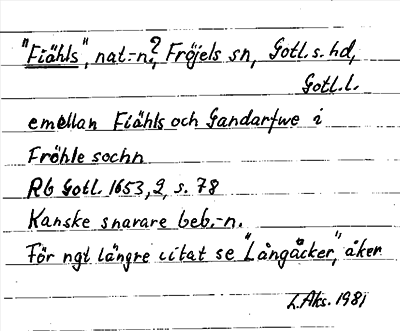 "Fiähls", nat.-n.?, Fröjels sn, Gotl. s. hd,
Gotl. l.
emellan Fiähls och Gandarfwe i
Fröhle sochn
Rb Gotl. 1653, 2, s. 78
Kanske snarare beb.-n.
För ngt längre citat se "Långäcker", åker
L. Aks. 1981